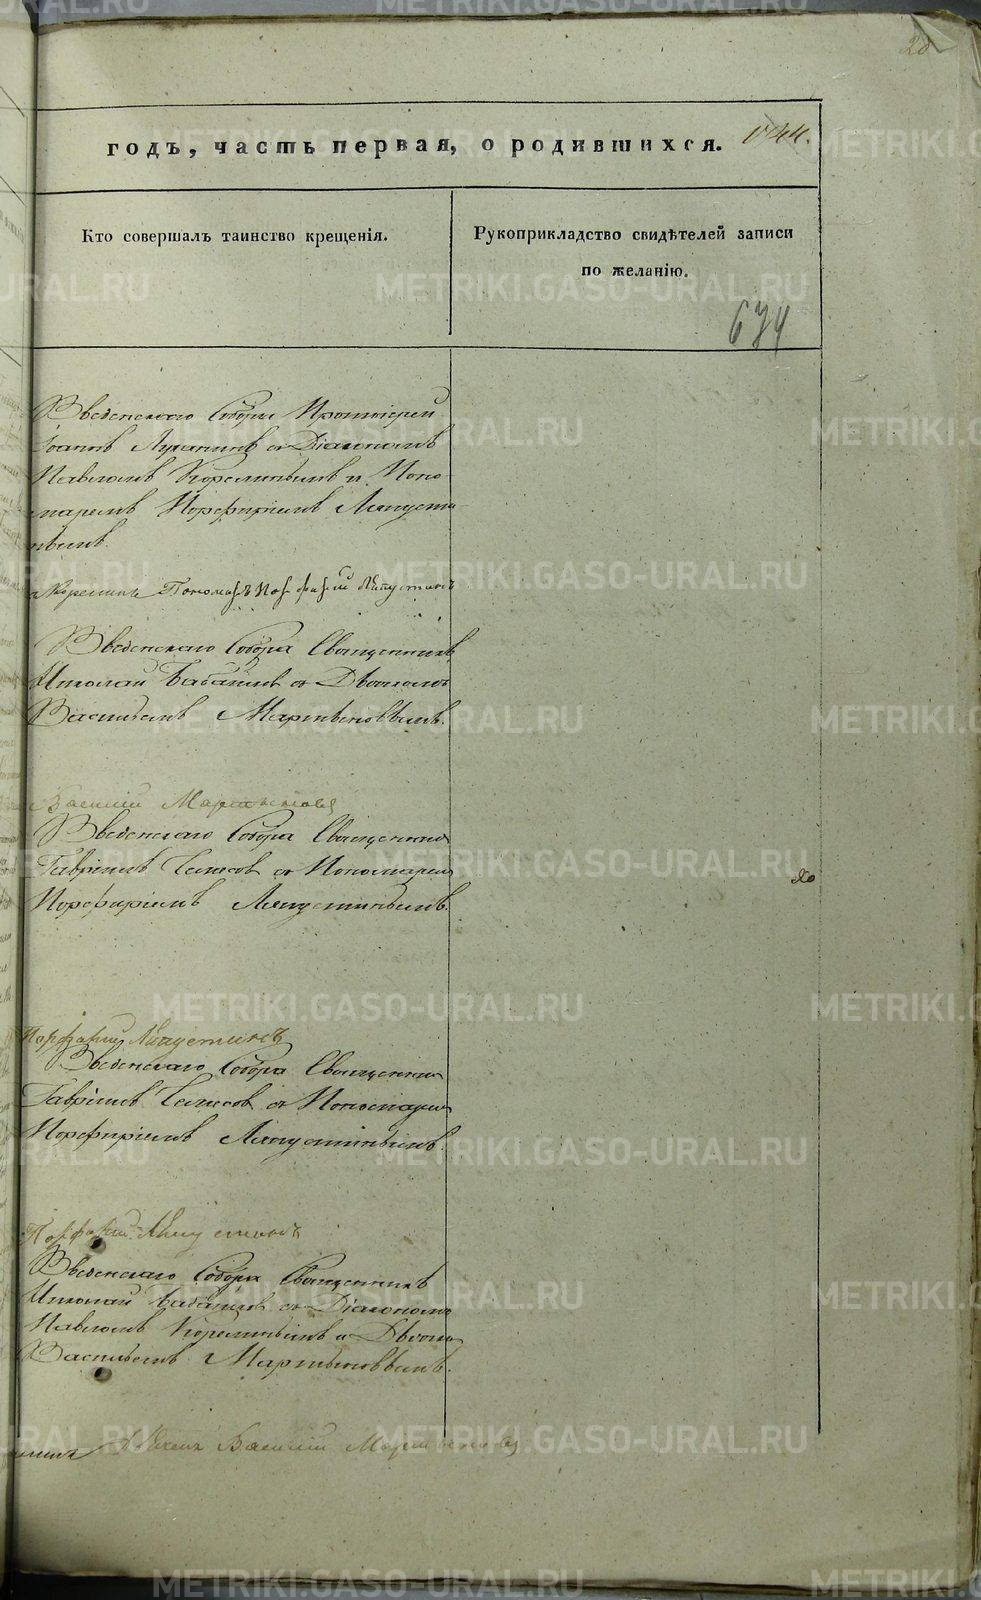 годъ, часть первая, о родившихся.
Кто совершалъ таинство крещенія.
Рукоприкладство свидѣтелей записи
по желанію.
674
Введенскаго Собора Протоіерей
Іоаннъ Луканинъ съ Діакономъ
Павломъ Корелинымъ и Поно
маремъ Порфиріемъ Ляпусти
нымъ.
Корелинъ Пономарь Порфирій Ляпустинъ
Введенскаго Собора Священникъ
Николай Бабинъ съ Дьячкомъ
Василіемъ Мартыновымъ.
Василій Мартыновъ
Введенскаго Собора Священникъ
Гавріилъ съ Пономаремъ
Порфиріемъ Ляпустинымъ.
Порфирій Ляпустинъ
Введенскаго Собора Священникъ
Гавріилъ съ Пономаремъ
Порфиріемъ Ляпустинымъ.
Порфирій Ляпустинъ
Введенскаго Собора Священникъ
Николай Бабинъ съ Діакономъ
Павломъ Корелинымъ и Дьячко
Василіемъ Мартыновымъ.
Дьячекъ Василій Мартыновъ
METRIKI.GASO-URAL.RU